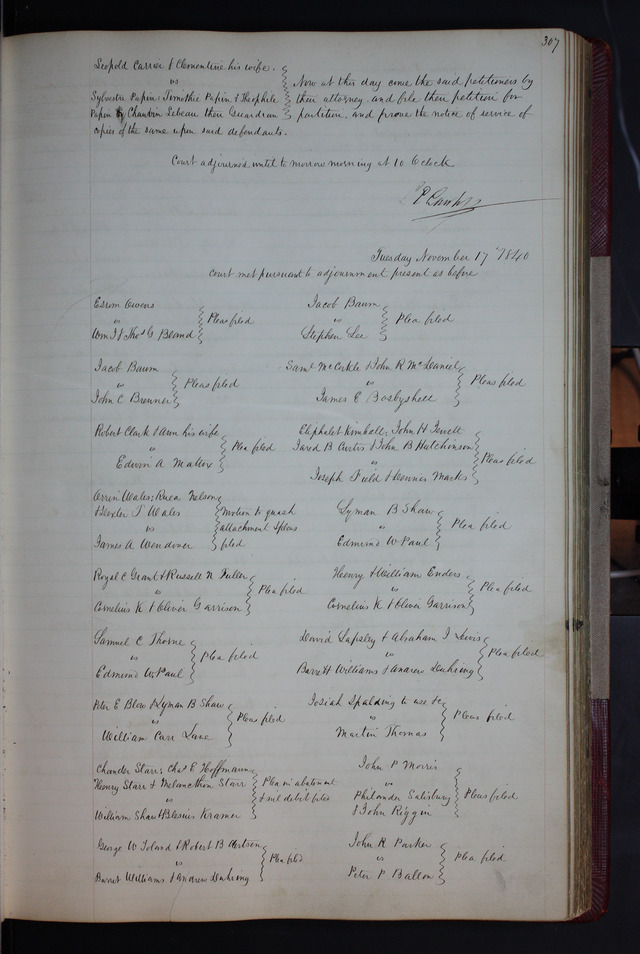 307
Leopold Carrier & Clementine his wife.
vs
Sylvestre Papin, Timothie Papin & Theophile
Papin by Chauvin Lebeau their Guardian
Now at this day come the said petitioners by
their attorney, and file their petition for
partition, and prove the notice of service of
copies of the same upon said defendants.
Court adjourned until to morrow morning at 10 O'clock
Tuesday November 17th 1840
Court met pursuant to adjournment present as before
Esrom Owens
vs
Wm J & Thos G
Pleas filed
Jacob Baum
vs
Stephen Lee
Plea filed
Jacob Baum
vs
John C Brenner
Pleas filed
Saml McCorkle & John R McDaniel
vs
James E Bosbyshell
Pleas filed
Robert Clark & Ann his wife
vs
Edwin A Mattox
Plea filed
Eliphalet Kimball, John H Jewett
Jared B Curtis & John B Hutchinson
vs
Joseph Field & Marks
Pleas filed
Orrin Wales, Nelson
& T Wales
vs
James A Wendover
Motion to quash
attachment & pleas
filed
Lyman B Shaw
vs
Edmund W Paul
Plea filed
Royal C Grant & Russell N Fuller
vs
Cornelius K & Oliver Garrison
Plea filed
Henry & William Enders
vs
Cornelius K & Oliver Garrison
Plea filed
Samuel C Thorne
vs
Edmund W Paul
Plea filed
David Lapsley & Abraham I Lewis
vs
Barret Williams & Andrew Duhring
Plea filed
Peter E Blow & Lyman B Shaw
vs
William Carr Lane
Pleas filed
Josiah Spalding to use &c
vs
Martin Thomas
Pleas filed
Chander Starr, Chas E Hoffmann
Henry Starr & Melancthon Starr
vs
William Shaw & Blasius Kramer
Plea in abatement
& nil debit filed
John P Morris
vs
Philander Salisbury
& John Riggin
Pleas filed
George W Toland & Robert B Aertson
vs
Barret Williams & Andrew Duhring
Plea filed
John R Parker
vs
Peter P Ballon
Plea filed